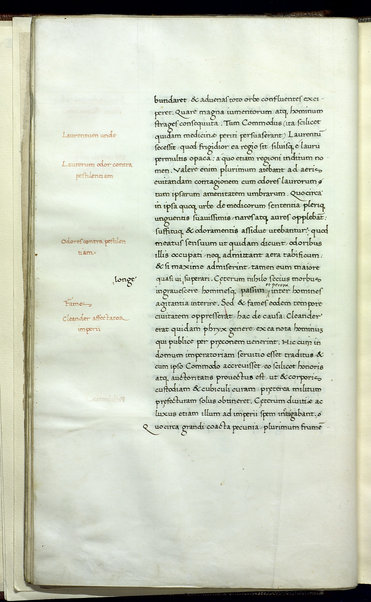 bundaret & aduenas toto orbe confluentes exci
peret. Quare magna iumentorum atq, hominum
strages consequuta. Tum Commodus (ita scilicet
quidam medicinæ periti persuaserant) Laurentũ
Laurentum unde
secessit quod frigidior ea regio sit siluisq, e lauri
permultis opaca: a quo etiam regioni inditum no
men. Valere enim plurimum aiebant ad aeris
Laurorum odor contra
pestilentiam
euitandam contagionem cum odores laurorum
tum ipsarum amœnitatem umbrarum. Quocirca
in ipsa quoq, urbe de medicorum sententia pleriq,
unguentis suauissimis nares atq, aures opplebãt
suffituq, & odoramentis assidue utebantur: quod
meatus sensuum ut quidam dicunt odoribus
Odores contra pestilen
tiam
illis occupati neq, admittant aera tabificum:
& si maxime admiserint: tamen eum maiore
quasi ui superari. Ceterum nihilo secius morbus
longe
ingrauescere hominesq, passim inter homines
agitantia interire. Sed & fames eodem tempore
Fames
ciuitatem oppresserat hac de causa. Cleander
Cleander affectator
imperii
erat quidam phryx genere ex ea nota hominũ
qui publice per præconem uenerint. Hic cum in
domum imperatoriam seruitio esset traditus &
cum ipso Commodo accreuisset: eo scilicet honoris
atq, auctoritatis prouectus est ut & corporis
custodiam & cubiculi curam præterea militum
præfecturam solus obtineret. Ceterum diuitiæ ac
luxus etiam illum ad imperii spem instigabant.
Quocirca grandi coacta pecunia plurimum frumẽ